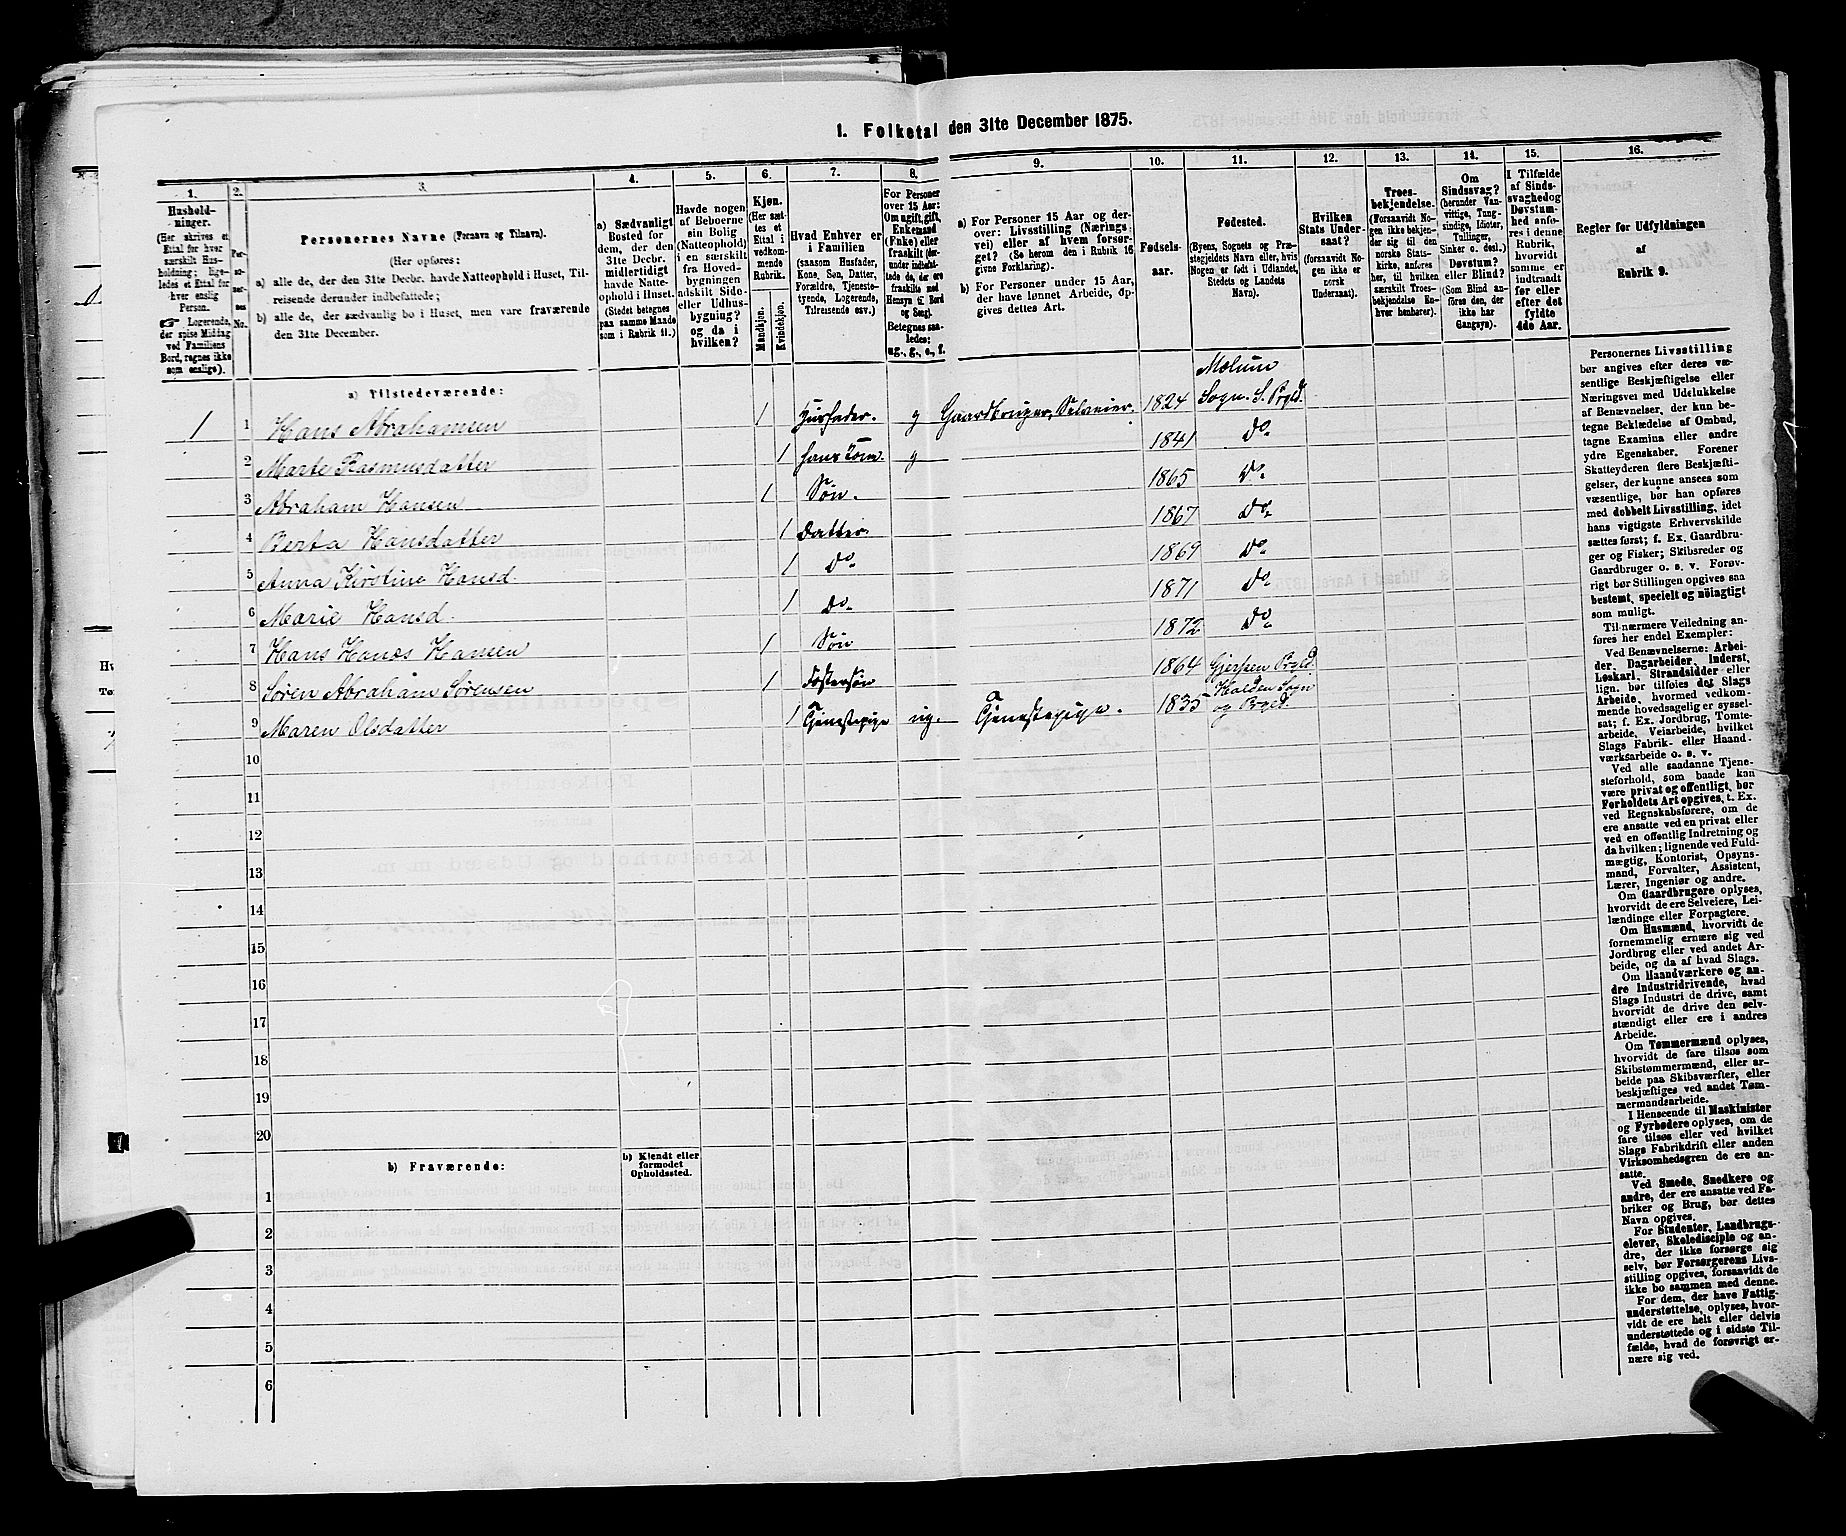 1. Folketal den 31te December 1875.
1.
2.
3.
4.
5.
6.
7.
8.
9.
10.
11.
12.
13.
14.
15.
16.
Hushold-
ninger.
(Her skrives et
Ettal for hver
særskilt Hus-
holdning; lige-
ledes et Ettal for
hver enslig
Person.
☞ Logerende,
der spise Middag
ved Familiens
Bord, regnes ikke
som enslige).
Per-
so-
ner-
nes
No.
Personernes Navne (Fornavn og Tilnavn).
(Her opføres:
a) alle de, der den 31te Decbr. havde Natteophold i Huset, Til-
reisende derunder indbefattede;
b) alle de, der sædvanlig bo i Huset, men vare fraværende
den 31te December.
a) Sædvanligt
Bosted for
dem, der den
31te Decbr.
midlertidigt
havde Natte-
ophold i Huset.
(Stedet betegnes
paa samme Maade
som i Rubrik 11.)
Havde nogen
af Beboerne
sin Bolig
(Natteophold)
i en særskilt
fra Hoved-
bygningen
adskilt Side-
eller Udhus-
bygning?
og da i
hvilken?
Kjøn.
(Her sæt-
tes et
Ettal i
vedkom-
mende
Rubrik.
Mandkjøn.
Kvindekjøn.
Hvad Enhver er
i Familien
(saasom Husfader,
Kone, Søn, Datter,
Forældre, Tjeneste-
tyende, Logerende,
Tilreisende osv.)
For Personer
over 15 Aar:
Om ugift, gift,
Enkemand
(Enke) eller
fraskilt (der-
under indbefat-
tede de, der ere
fraskilte med
Hensyn til Bord
og Seng).
Betegnes saa-
ledes:
ug., g., e., f.
a) For Personer 15 Aar og der-
over: Livsstilling (Nærings-
vei) eller af hvem forsør-
get? (Se herom den i Rubrik 16
givne Forklaring).
b) For Personer under 15 Aar,
der have lønnet Arbeide, op-
gives dettes Art.
Fødsels-
aar.
Fødested.
(Byens, Sognets og Præ-
stegjeldets Navn eller, hvis
Nogen er født i Udlandet,
Stedets og Landets
Navn).
Hvilken
Stats Under-
saat?
(forsaavidt No-
gen ikke er
norsk
Undersaat).
Troes-
bekjendelse.
(Forsaavidt No-
gen ikke bekjen-
der sig til den
norske Stats-
kirke, anføres
her, til hvilken
særskilt Troes-
bekjendelse En-
hver henhører).
Om
Sindssvag?
(herunder Van-
vittige, Tung-
sindige, Idioter,
Tullinger,
Sinker o. desl.)
Døvstum?
eller Blind?
(Som Blind an-
føres den, der
ikke har
Gangsyn).
I Tilfælde
af Sinds-
svaghed og
Døvstum-
hed anfø-
res i denne
Rubrik,
hvorvidt
samme er
indtraadt
før eller
efter det
fyldte
4de Aar.
Regler for Udfyldningen
af
Rubrik 9.
a) Tilstedeværende:
1 1 Hans Abrahamsen 1 Husfader. g Gaardbruger, Selveier. 1824 Mælum
Sogn. S. Prgld.
2 Marte Rasmusdatter 1 hans Kone. g 1841 Do.
3 Abraham Hansen 1 Søn. 1865 Do.
4 Berta Hansdatter 1 Datter. 1867 Do.
5 Anna Kirstine Hansd. 1 Do. 1869 Do.
6 Marie Hansd. 1 Do. 1871 Do.
7 Hans Hansen 1 Søn 1872 Do.
8 Søren Abraham Sørensen 1 Fostersøn 1864 Gjerpen Prgld.
9 Maren Olsdatter 1 Tjenestepige ug. Tjenestepige. 1835 Holden Sogn
og Prgld.
10
11
12
13
14
15
16
17
18
19
20
b) Fraværende:
b) Kjendt eller
formodet
Opholdssted.
1
2
3
4
5
6
Personernes Livsstilling
bør angives efter deres væ-
sentlige Beskjæftigelse eller
Næringsvei med Udelukkelse
af Benævnelser, der kun be-
tegne Beklædelse af Ombud,
tagne Examina eller andre
ydre Egenskaber. Forener
Skatteyderen flere Beskjæfti-
gelser, der kunne ansees som
væsentlige, bør han opføres
med dobbelt Livsstilling, idet
hans vigtigste Erhvervskilde
sættes først; f. Ex. Gaardbru-
ger og Fisker; Skibsreder og
Gaardbruger o. s. v. Forøv-
rigt bør Stillingen opgives saa
bestemt, specielt og nøiagtigt
som muligt.
Til nærmere Veiledning an-
føres her endel Exempler:
Ved Benævnelserne: Arbei-
der, Dagarbeider, Inderst,
Løskarl, Strandsidder eller
lign. bør tilføies det Slags
Arbeide, hvormed vedkom-
mende hovedsagelig er syssel-
sat; f. Ex. Jordbrug, Tomte-
arbeide, Veiarbeide, hvilket
Slags Fabrik- eller Haand-
værksarbeide o. s. v.
Ved alle saadanne Tjene-
steforhold, som baade kan
være privat og offentligt, bør
Forholdets Art opgives, t. Ex.
ved Regnskabsførere, om de
ere ansatte ved en privat eller
ved en offentlig Indretning og
da hvilken; lignende ved Fuld-
mægtig, Kontorist, Opsyns-
mand, Forvalter, Assistent,
Lærer, Ingeniør og andre.
Om Gaardbrugere oplyses,
hvorvidt de ere Selveiere, Lei-
lændinge eller Forpagtere.
Om Husmænd, hvorvidt de
fornemmelig ernære sig ved
Jordbrug eller ved andet Ar-
beide, og da af hvad Slags.
Om Haandværkere og an-
dre Industridrivende, hvad
Slags Industri de drive, samt
hvorvidt de drive den selv-
stændigt eller ere i andres
Arbeide.
Om Tømmermænd oplyses,
hvorvidt de fare tilsøs som
Skibstømmermænd, eller ar-
beide paa Skibsværfter, eller
beskjæftiges ved andet Tøm-
mermandsarbeide.
I Henseende til Maskinister
og Fyrbødere oplyses, om de
fare tilsøs eller ved hvilket
Slags Fabrikdrift eller anden
Virksomhedsgren de ere an-
satte.
Ved Smede, Snedkere og
andre, der ere ansatte ved Fa-
briker og Brug, bør dettes
Navn opgives.
For Studenter, Landbrugs-
elever, Skoledisciple og an-
dre, der ikke forsørge sig
selv, bør Forsørgerens Livs-
stilling opgives, forsaavidt de
ikke bo sammen med denne.
For dem, der have Fattig-
understøttelse, oplyses, hvor-
vidt de ere helt eller delvis
understøttede og i sidste Til-
fælde, hvad de forøvrigt er-
nære sig ved.